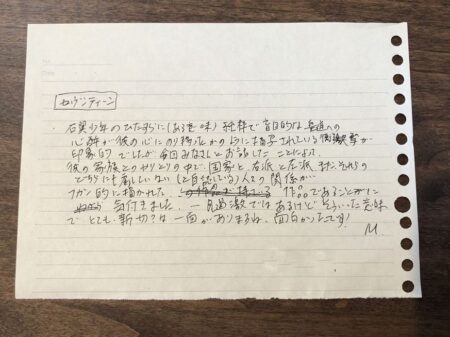 セヴンティーン
右翼少年のひたすらに(ある意味)純粋で盲目的な 右翼への
心酔が彼の心にのり移ったかのように描写されている
印象的でしたが 毎回みなさんとお話ししたことによって、
彼の家族とのやりとりの中で、国家と、右派と左派、また、それらの
どちらにも属しない(と自認している)人々の関係が
的に描かれた であることが
気付きました。一見過激ではあるけどそういった意味
で、とても 親切な一面がありますね、面白かったです!
M